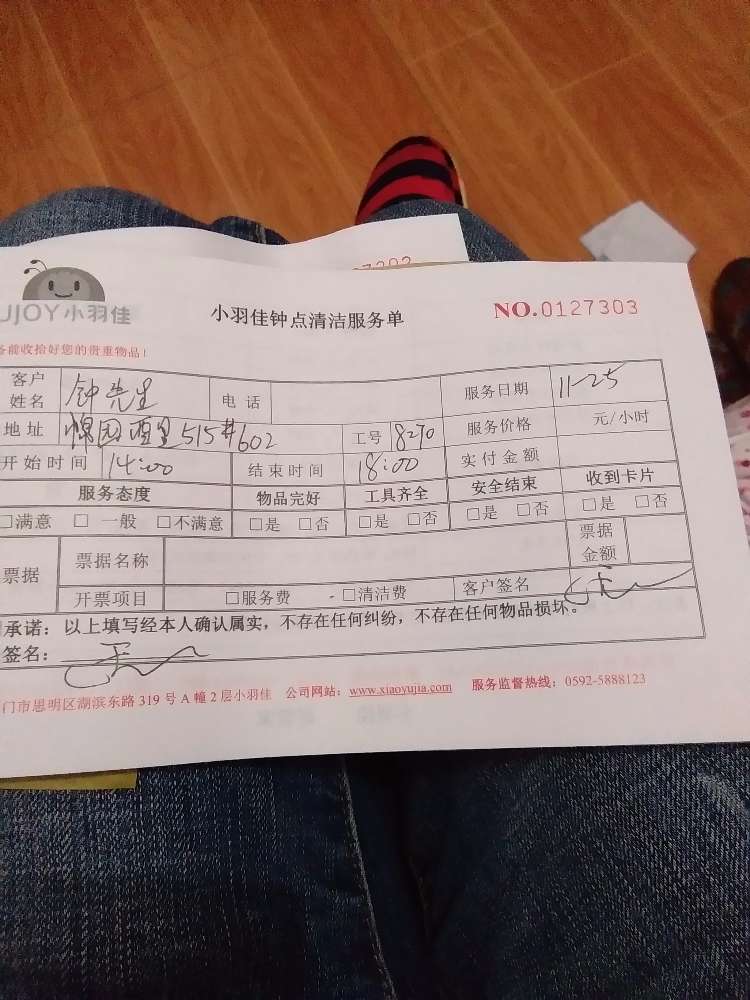 7303
UJOY小羽佳
小羽佳钟点清洁服务单
NO.0127303
备前收拾好您的贵重物品!
客户姓名 钟先生 电话 服务日期 11-25
地址 西里515#602 工号 8270 服务价格 元/小时
开始时间 14:00 结束时间 18:00 实付金额
服务态度 物品完好 工具齐全 安全结束 收到卡片
□满意 □一般 □不满意 □是 □否 □是 □否 □是 □否 □是 □否
票据 票据名称 票据金额
开票项目 □服务费 □清洁费 客户签名
承诺:以上填写经本人确认属实,不存在任何纠纷,不存在任何物品损坏。
签名:
门市思明区湖滨东路 319 号 A 幢 2 层小羽佳 公司网站:www.xiaoyujia.com 服务监督热线:0592-5888123